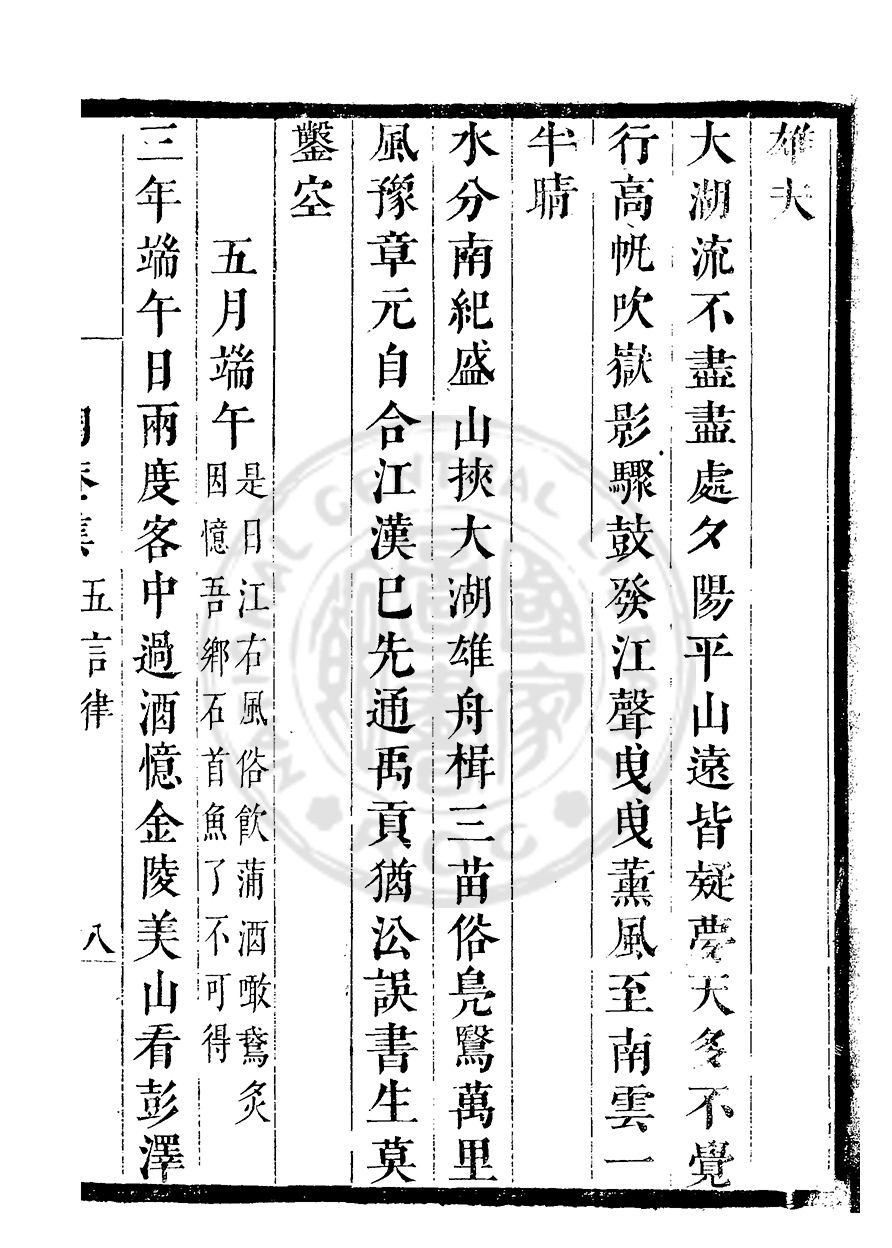 雄夫
大湖流不盡盡處夕陽平山遠皆疑夢天多不覺
行高帆吹嶽影驟鼓發江聲曳曳薰風至南雲一
半晴
水分南紀盛山挾大湖雄舟楫三苗俗鳧鷖萬里
風豫章元自合江漢巳先通禹貢猶訟誤書生莫
鑿空
五月端午是日江右風俗飲蒲酒噉鵞炙
因憶吾鄉石首魚了不可得
三年端午日兩度客中過酒憶金陵美山看彭澤
五言律
八